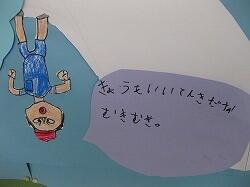 きょうもいいてんきだな
むきむき。